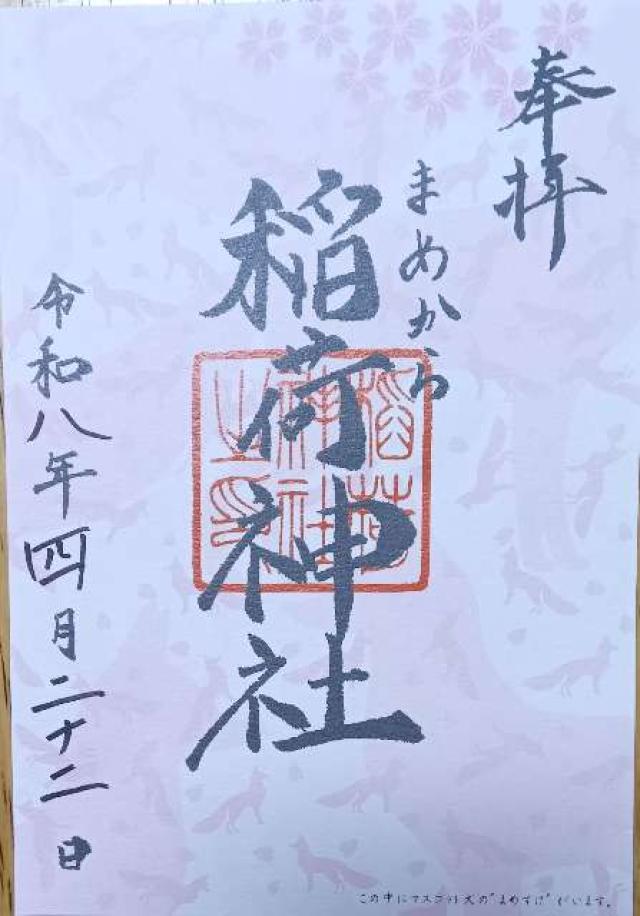 奉拝
まめから
稲荷神社
稲荷
神社
之印
令和八年四月二十二日
この中にマスコット犬の"まめすけ"がいます。